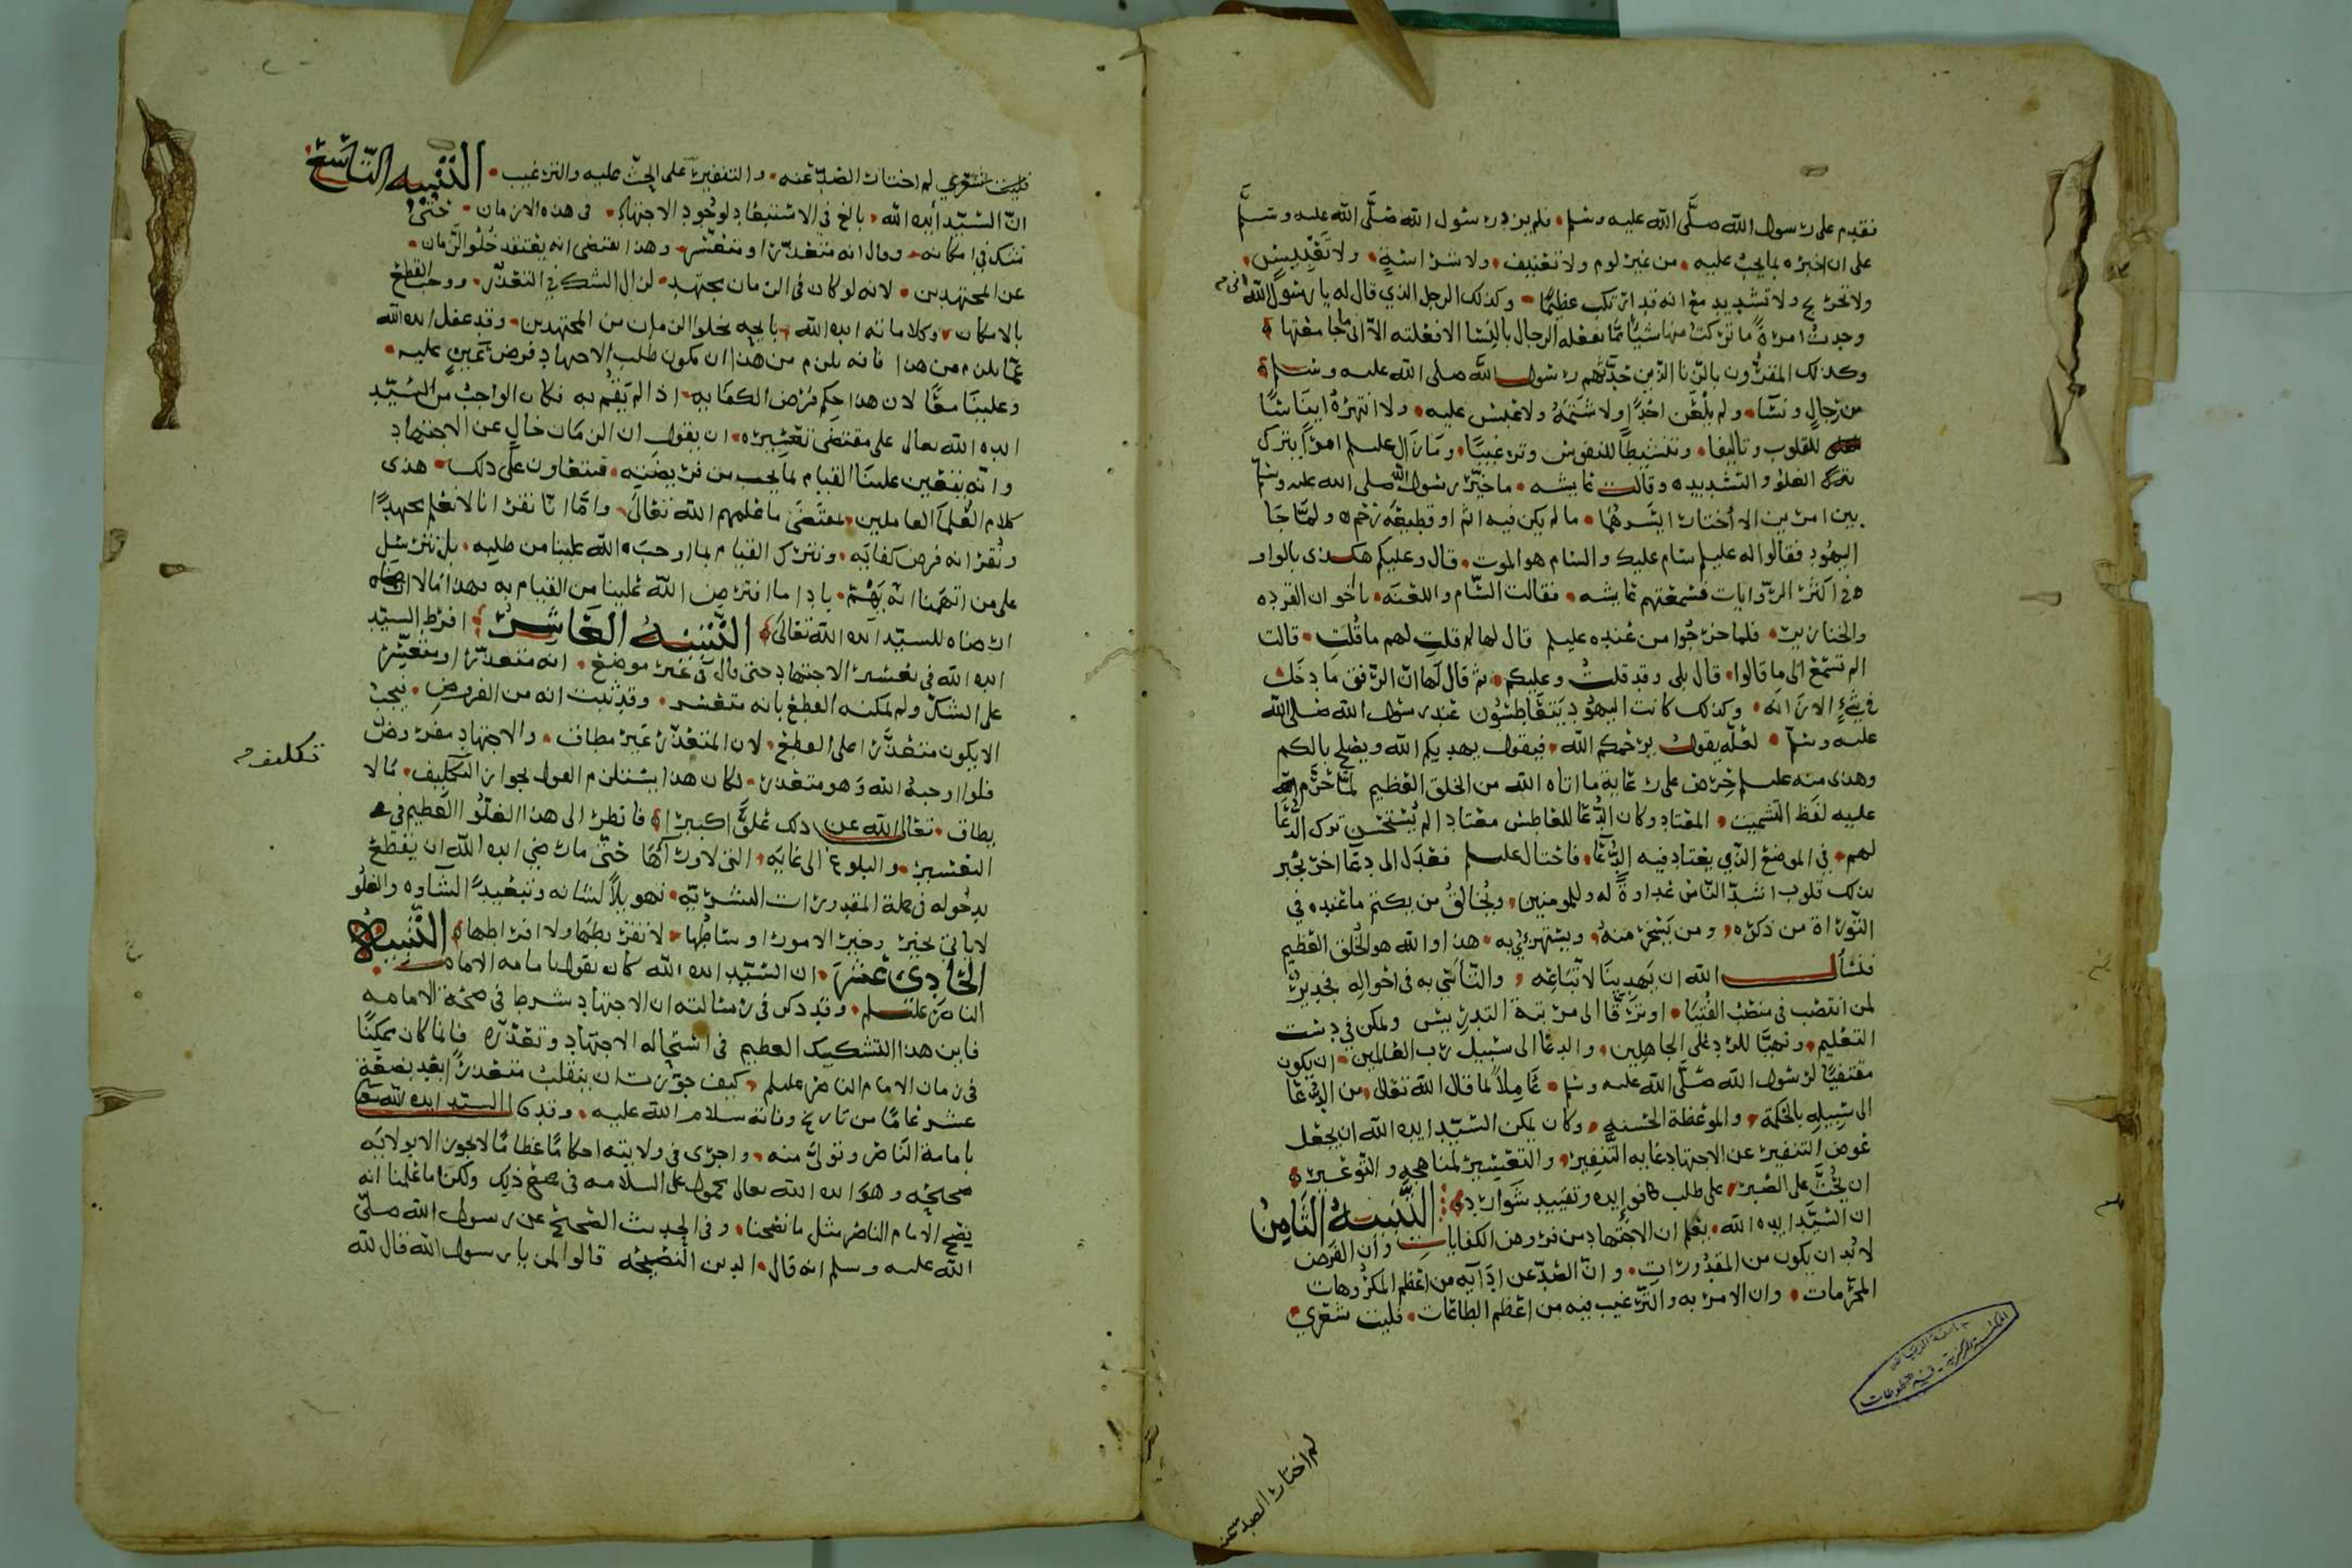 فقدم على رسول الله صلَّى الله عليه وسلم فلم يزد رسول الله صَلَّى الله عليه وسلَّم
على ان اخبره بما يجب عليه من غير لوم ولا تعنيف ولا شراسةٍ ولا تَعْبِيسٍ
ولا تحريج ولا تشديد مع انه قد ارتكب عظيمًا وكذلك الرجل الذي قال له يا رسول الله اني
وجدت امرءةً ما تركت منها شيئًا مما يفعله الرجال بالنسا الا فعلته الا اني ما جامعتها
وكذلك المقرّون بالزنا الذين حدَّهُم رسول الله صلى الله عليه وسلم
من رجالٍ ونسآء ولم يلْعَن احدًا ولا شَتَمَهُ ولا عبس عليه ولا انتهرهُ ايناسًا
للقلوب وتاليفا وتنشيطًا للنفوس وترغيبًا ومَا زَال عليلم امرًا بترك
بترك الغلو والتشديد وقالت عايشه ما خيّر رسول الله صلى الله عليه وسلم
بين امرين الا اختار ايسرهُما ما لم يكن فيه اثم او قطيعة رحم ولمّا جَا
اليهُود فقالوا له عليلم سام عليك والسام هو الموت قال وعليكم هكذى بالواو
في اكثر الرّوايات فسمعتهم عايشه فقالت السّام واللعنَه يا اخوان القرده
والخنازير فلما خرجُوا من عندِه عليلم قال لها لم قلتِ لهم ما قُلتِ قالت
الم تسْمَع الى ما قالوا قال بلى وقد قلتُ وعليكم ثم قال لَها انّ الرّفق مَا دخَل
في شيءٍ الا زَانَه وكذلك كانت اليهُود يَتعَاطسُون عند رسول الله صلى الله
عليه وسلم لعلّه يقول يرحَمكم الله فيقول يهديكم الله ويصلح بالكم
وهذى منه عليلم حِرْص على غاية ما اتاه الله من الخلق العَظيم لمّا حُرّم
عليه لفظ التشميت المعتاد وكان الدُّعَا للعَاطِس معتادا لم يُستَحْسن ترك الدُّعَا
لهم في الموضع الذي يعتاد فيه الدُّعَا فاحتال عليلم فعَدَل الى دعَا اخر يجبر
بذلك قلوب اشدّ النّاس عداوةً له وللمومنين ويُخالقُ من يكتم ما عنده في
التّورَاة من ذكره ومن يَسْخر منهُ ويستهزئي به هذا والله هو الخُلق العظيم
فنسأل الله ان يَهدينَا لاتّبَاعِه والتّأسّي به في احوالِه فجديرٌ
لمن انتصَب في منصَب الفُتيَا او ترقّا الى مرتبة التدريس وتمكن في دست
التعليم وتهيَّا للرد على الجاهلين والدعا الى سبيل رب العَالمين ان يكون
مقتفيًا لرسُول الله صلَّى الله عليه وسلم عَاملاً لما قال الله تعالى من الدُّعَا
الى سَبِيلهِ بالحكمة والموعظة الحسنه وكان يمكن السّيّد ايده الله ان يجعل
عوض التنفير عن الاجتهاد غاية التّنفير والتعْسِير لمناهجِه والتّوعير
ان يحُثَّ على الصَبر على طلب فوائده وتقييد شوارده التَّنبيهُ الثّامنُ
ان السّيّد ايده الله يعلم ان الاجتهاد من فروض الكفايات وان الفرض
لا بُد ان يكون من المقدُورات وانّ الصَّدّ عن ادَآيه من اعظم المكروهات
المحرّمات وان الامر به والتّرغيب فيه من اعظم الطاعات فليت شعري
لم اختار الصد عنه
جامعة الرياض
المكتبة المركزية - قسم المخطوطات
فليت شعري لم اختار الصَّدّ عنه والتنفير على الحثّ عليه والترغيب التّنبيه التّاسع
انّ السّيّد أيده الله بالغ في الاستبعَاد لوجُود الاجتهاد في هذه الازمان حتى
شكك في امكانه وقال انه متعذّر او متعسّر وهذا يقتضى انه يعتقد خُلُو الزّمان
عن المجتهدين لانه لو كان في الزمان مجتهد لزال الشك في التعذّر ووجب القطع
بالامكان وكلامانه ايده الله بانه يخلو الزمان من المجتهدين وقد غفل ايده الله
عمّا يلزم من هذا فانه يلزم من هذا ان يكون طلب الاجتهاد فرض عَينٍ عليه
وعلينا معًا لان هذا حكم فرض الكفَايه اذا لم يَقُم به فكان الواجب من السّيّد
ايده الله تعالى على مقتضَى تعْسيره ان يقول ان الزمَان خالٍ عن الاجتهاد
وانّه يتعَين علينا القيام بما يجب من فريضَتِه فنتعَاون على ذلك هذى
كلام العُلمآ العاملين بمقتضَى ما علمهم الله تعَالى وامّا انّا نقرّ انا لا نعلم مجتهدًا
ونُقرّ انه فرض كفايَه ونترك القيام بما اوجبَه الله علينا من طلبِه بل نترسّل
على من اتهمنا انّه يَهُمّ باداء ما افترض الله علينا من القيام به فهذا مَا لا ارضَاه
ارضاه للسيّد ايده الله تعَالى التّنبيهُ العَاشِر افرط السيّد
ايده الله في تعْسير الاجتهاد حتى قال في غير موضع انه متعذّر او متعسّر
على الشكّ ولم يمكنه القطع بانه متعسّر وقد ثبت انه من الفروض فيجب
الا يكون متعَذّرًا على القطع لان المتعَذّر غير مطاق والاجتهاد مفروض
فلو اوجبهُ الله وَهو متعَذر لكان هذا يستلزم القول بجواز التّكليف بمَا لا
يطاق تعَالى الله عن ذلك عُلوًّا كبيرًا فانظر الى هذا الغلُوّ العَظيم في
التعْسير والبلوغ الى غايَه التى لا ورآءَهَا حَتَّى ما رضي ايده الله ان يَقْطع
بدخُوله في جملة المقدورات البشريّه تهويلاً لشانه وتبعيدًا لشاوه والغلُو
لا ياتى بخير وخير الامور اوساطُها لا تفريطهَا ولا افراطها التّنبيهُ
الحَادى عَشَر ان السّيّد ايده الله كان يقول بامامة الامام
الناصر عليلم وقد ذكر في رسالته ان الاجتهاد شرط في صحّة الامامه
فاين هذا التشكيك العظيم في استحاله الاجتهاد وتعَذّره فانما كان ممكنًا
في زمان الامام الناصر عليلم كيف جوّزت ان ينقلب متعَذّرًا بعد بضعَة
عشر عَامًا من تاريخ وفاته سلام الله عليه وقد كان السيد ايده الله يقول
بامامة النّاصر وتولىَّ منه واجرى في ولايته احكامًا عظامًا لا تجوز الا بولايه
صحيحَه وهوَ ايده الله تعالى محمول على السلامه في صحّة ذلِك ولكن ما علمنا انه
نصَح الامام الناصر بمثل ما نصَحنا وفى الحديث الصَّحيح عن رسول الله صَلّى
الله عليه وسلم انه قال الدين النّصيحَه قالوا لمن يا رسول الله قال لله
تكليف